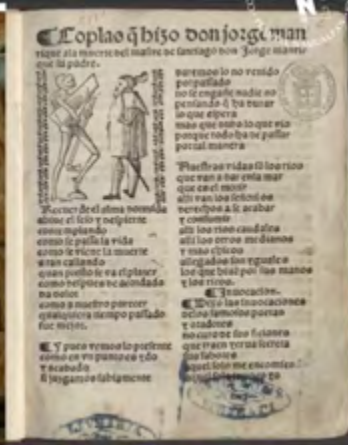 Coplas q̃ hizo don jorge man
rique a la muerte del maestre de santiago don Jorge manri
que su padre.
Recuerde el alma dormida
abiue el seso y despierte
contemplando
como se passa la vida
como se viene la muerte
tan callando
quan presto se va el plazer
como despues de acordado
da dolor
como a nuestro parecer
qualquiera tiempo passado
fue mejor.
Y pues vemos lo presente
como en vn punto es ydo
y acabado
si juzgamos sabiamente
daremos lo no venido
por passado
no se engañe nadie no
pensando q̃ ha durar
lo que espera
mas que duro lo que vio
porque todo ha de passar
por tal manera
Nuestras vidas sõ los rios
que van a dar en la mar
que es el morir
alli van los señorios
derechos a se acabar
y consumir
alli los rios caudales
alli los otros medianos
y mas chicos
allegados son yguales
los que biuẽ por sus manos
y los ricos.
Inuocacion.
Dexo las inuocaciones
de los famosos poetas
y oradores
no curo de sus ficiones
que traen yerua secreta
sus sabores
aquel solo me encomiẽdo